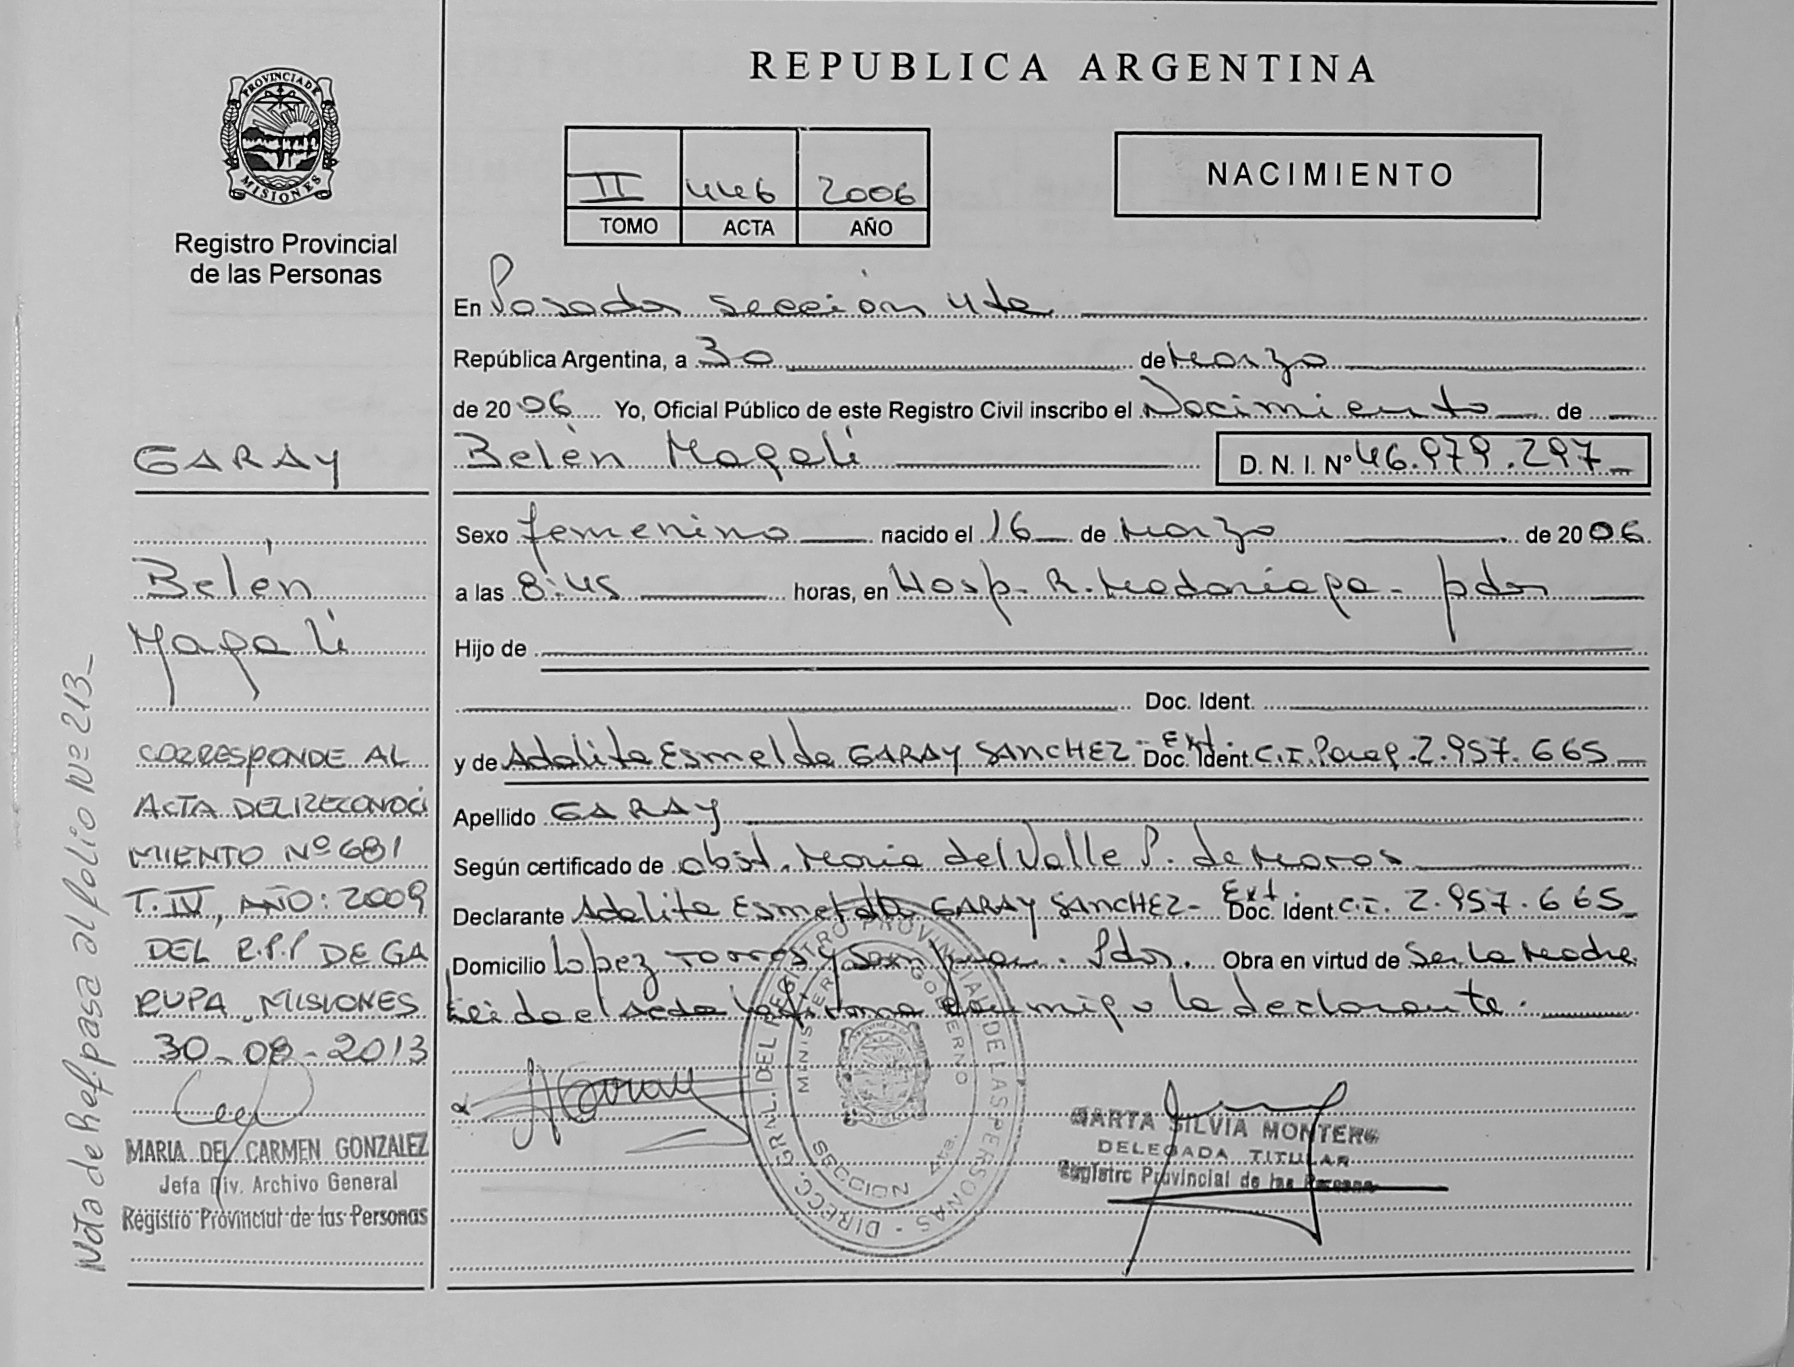 REPUBLICA ARGENTINA
PROVINCIA DE MISIONES
Registro Provincial
de las Personas
II 446 2006
TOMO ACTA AÑO
NACIMIENTO
En Posadas sección 4ta
República Argentina, a 30 de Marzo
de 2006 Yo, Oficial Público de este Registro Civil inscribo el Nacimiento de
Belén Magalí D. N. I. Nº 46.979.297
Sexo femenino nacido el 16 de Marzo de 2006
a las 8:45 horas, en Hosp. R. Madariaga - pdas
Hijo de
Doc. Ident.
y de Adalita Esmelda GARAY SANCHEZ - Ext. Doc. Ident. C.I. Parag. 2.957.665
Apellido GARAY
Según certificado de obst. Maria del Valle P. de Maros
Declarante Adalita Esmelda GARAY SANCHEZ - Ext Doc. Ident. C.I. 2.957.665
Domicilio Lopez Torres y San Juan. Pdas. Obra en virtud de Ser la Madre
Leida el Acta la firma conmigo la declarante.
GARAY
Belén
Magalí
CORRESPONDE AL
ACTA DE RECONOCI
MIENTO Nº 681
T. IV, AÑO: 2009
DEL R.P.P DE GA
RUPA, MISIONES
30-08-2013
MARIA DEL CARMEN GONZALEZ
Jefa Div. Archivo General
Registro Provincial de las Personas
Nota de Ref. pasa al folio Nº 213
Garay
DIRECC. GRAL. DEL REGISTRO PROVINCIAL DE LAS PERSONAS
MINISTERIO GOBIERNO
SECCION 4ta.
MARTA SILVIA MONTERO
DELEGADA TITULAR
Registro Provincial de las Personas